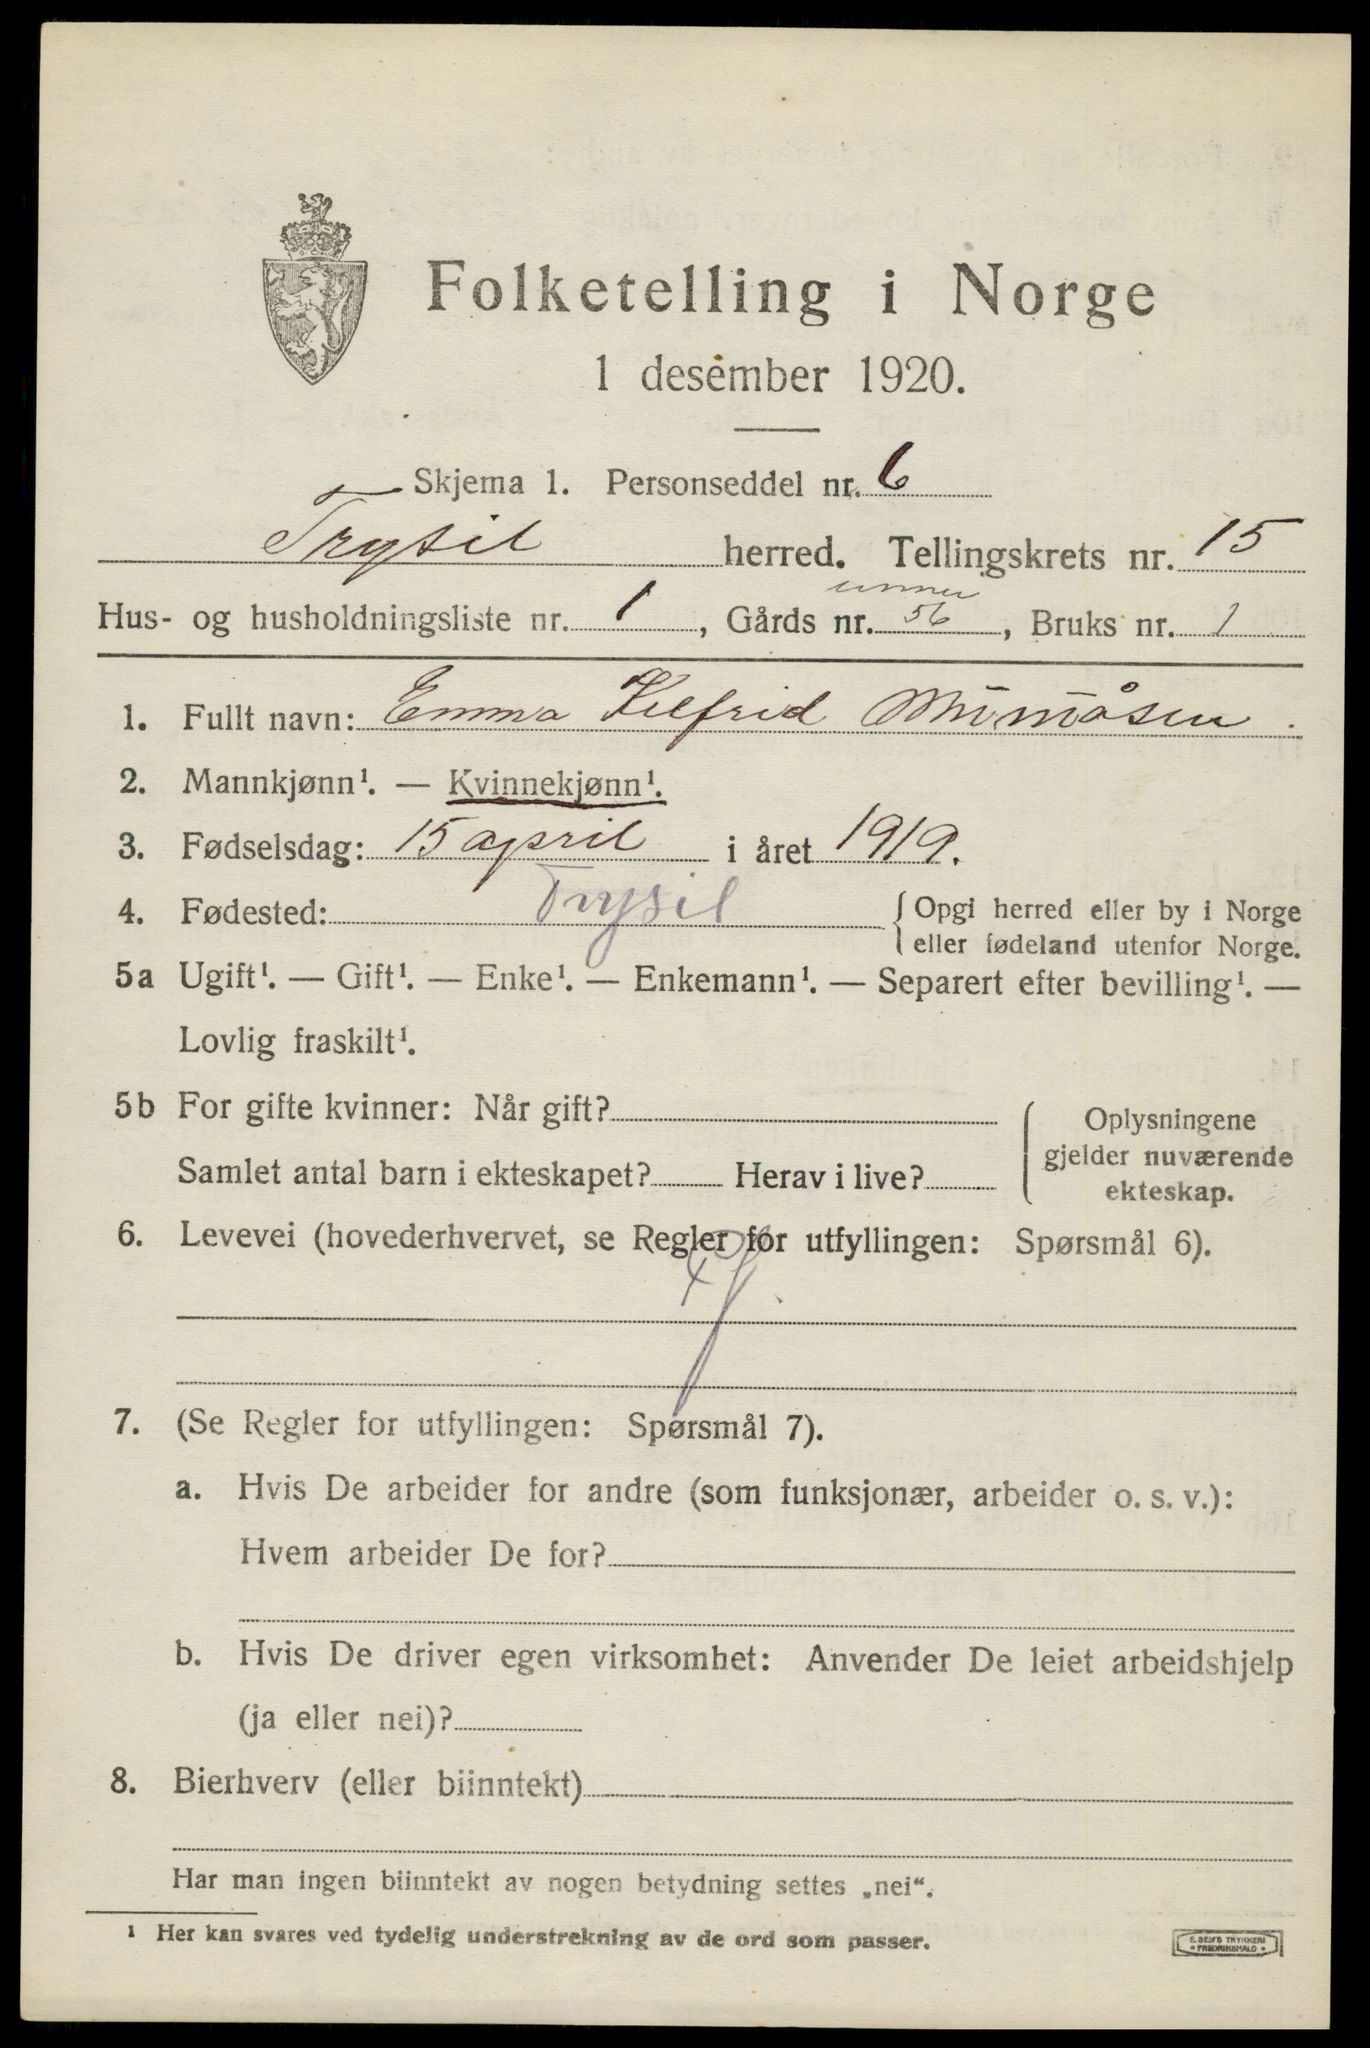 Folketelling i Norge
1 desember 1920.
Skjema 1. Personseddel nr. 6
Trysil herred. Tellingskrets nr. 15
Hus- og husholdningsliste nr. 1, Gårds nr. 56, Bruks nr. 1
1. Fullt navn: Emma
2. Mannkjønn¹. — Kvinnekjønn¹.
3. Fødselsdag: 15 april i året 1919.
4. Fødested: Trysil { Opgi herred eller by i Norge
eller fødeland utenfor Norge.
5a Ugift¹. — Gift¹. — Enke¹. — Enkemann¹. — Separert efter bevilling¹. —
Lovlig fraskilt¹.
5b For gifte kvinner: Når gift?
Samlet antal barn i ekteskapet? Herav i live?
{ Oplysningene
gjelder nuværende
ekteskap.
6. Levevei (hovederhvervet, se Regler for utfyllingen: Spørsmål 6).
7. (Se Regler for utfyllingen: Spørsmål 7).
a. Hvis De arbeider for andre (som funksjonær, arbeider o. s. v.):
Hvem arbeider De for?
b. Hvis De driver egen virksomhet: Anvender De leiet arbeidshjelp
(ja eller nei)?
8. Bierhverv (eller biinntekt)
Har man ingen biinntekt av nogen betydning settes „nei“.
¹ Her kan svares ved tydelig understrekning av de ord som passer.
E. SEM'S TRYKKERI
• FREDRIKSHALD •